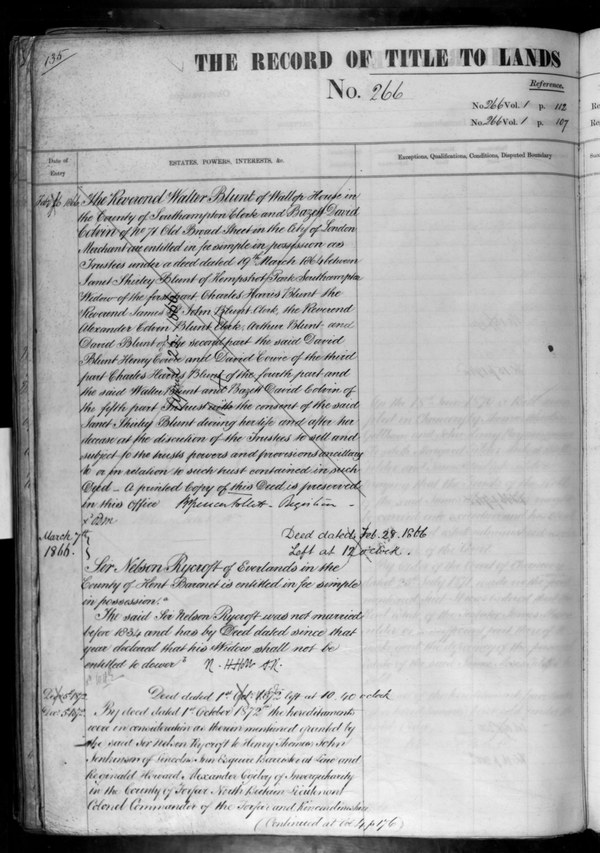 135
THE RECORD OF TITLE TO LANDS
No. 266
Reference.
No. 266 Vol. 1 p. 112
No. 266 Vol. 1 p. 107
Date of Entry
ESTATES, POWERS, INTERESTS, &c.
Exceptions, Qualifications, Conditions, Disputed Boundary
The Reverend Walter Blunt of Wallop House in
the County of Southampton Clerk and Bazett David
Colvin of No 71 Old Broad Street in the City of London
Merchant are entitled in fee simple in possession as
Trustees under a deed dated 19th March 1864 between
Janet Shirley Blunt of Kempshot Park Southampton
Widow of the first part Charles Harris Blunt the
Reverend James John Blunt Clerk, the Reverend
Alexander Colvin Blunt Clerk, Arthur Blunt and
David Blunt of the second part the said David
Blunt Henry Cowie and David Cowie of the third
part Charles Harris Blunt of the fourth part and
the said Walter Blunt and Bazett David Colvin of
the fifth part In trust with the consent of the said
Janet Shirley Blunt during her life and after her
decease at the discretion of the Trustees to sell and
subject to the trusts powers and provisions ancillary
to or in relation to such trust contained in such
Deed – A printed Copy of this Deed is preserved
in this office
March 7th
1866.
Deed dated Feb. 28. 1866
Left at 12 o'clock.
Sir Nelson Rycroft of Everlands in the
County of Kent Baronet is entitled in fee simple
in possession.
The said Sir Nelson Rycroft was not married
before 1834 and has by Deed dated since that
year declared that his Widow shall not be
entitled to dower
Deed dated 1st Oct. 1872 left at 10.40 o'clock
Dec. 5th 1872
By deed dated 1st October 1872 the hereditaments
were in consideration as therein mentioned granted by
the said Sir Nelson Rycroft to Henry Thomas John
Jenkinson of Lincolns Inn Esquire Barrister at Law and
Reginald Howard Alexander Ogilvy of Inverquharity
in the County of Forfar North Britain Lieutenant
Colonel Commander of the Forfar and Kincardineshire
(Continued at Vol 4 p 176)